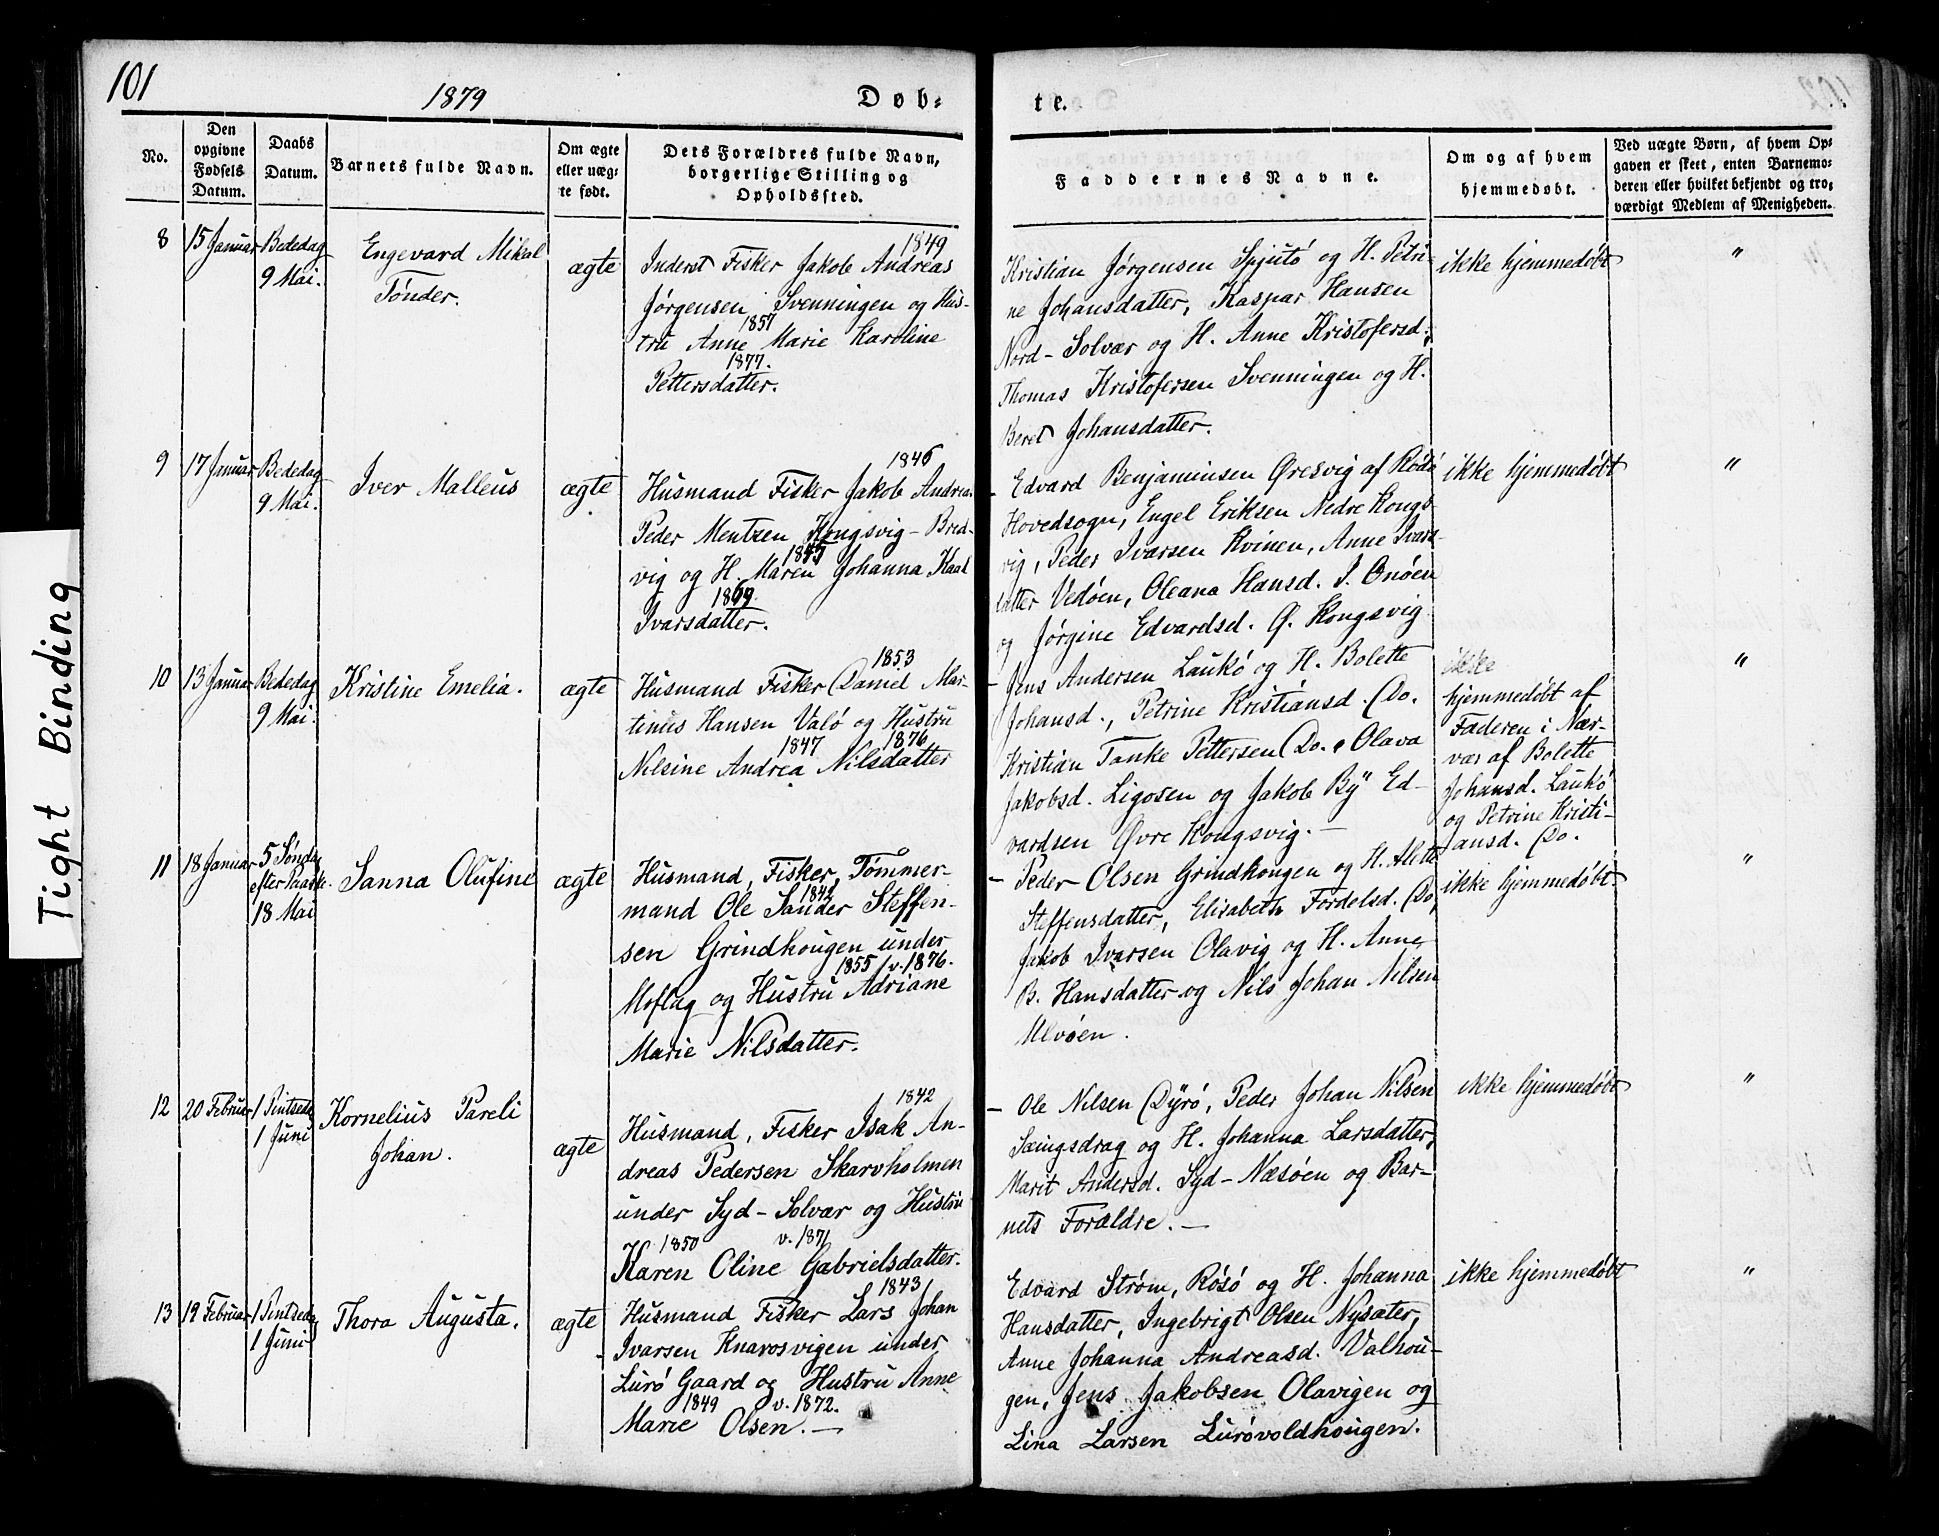 101
1879
Døb-
te.
No.
Den
opgivne
Fødsels
Datum.
Daabs
Datum.
Barnets fulde Navn.
Om ægte
eller uæg-
te født.
Dets Forældres fulde Navn,
borgerlige Stilling og
Opholdssted.
Faddernes Navne.
Om og af hvem
hjemmedøbt.
Ved uægte Børn, af hvem Op-
gaven er skeet, enten Barnemo-
deren eller hvilket bekjendt og tro-
værdigt Medlem af Menigheden.
8
15 Januar
Bededag
9 Mai.
Engevard Mikal
Tønder.
ægte
1849
Inderst Fisker Jakob Andreas
Jørgensen Svenningen og Hus-
1857
tru Anne Marie Karoline
1877.
Pettersdatter.
Kristian Jørgensen Spjutö og H. Petri-
ne Johansdatter, Kaspar Hansen
Nord-Solvær og H. Anne Kristofersd.,
Thomas Kristofersen Svenningen og H.
Beret Johansdatter.
ikke hjemmedøbt
"
9
17 Januar
Bededag
9 Mai.
Iver Malleus
ægte
1846
Husmand Fisker Jakob Andreas
Peder Mentzen Kongsvig-Bred-
1845
vig og H. Maren Johanna Kaal
1869.
Ivarsdatter.
- Edvard Benjaminsen Øresvig af Rødø
Hovedsogn, Engel Eriksen Nedre Kongs-
vig, Peder Ivarsen Kvinen, Anne Ivars-
datter Vedøen, Oleana Hansd. I. Onøen
og Jørgine Edvardsd. Ø. Kongsvig.
ikke hjemmedøbt
"
10
13 Januar
Bededag
9 Mai.
Kristine Emelia.
ægte
1853
Husmand Fisker Daniel Mar-
tinus Hansen Valö og Hustru
1847 1876
Nilsine Andrea Nilsdatter
- Jens Andersen Laukö og H. Bolette
Johansd., Petrine Kristiansd. Do.
Kristian Tanke Pettersen Do. Olava
Jakobsd. Ligosen og Jakob By Ed-
vardsen Øvre Kongsvig. -
ikke
hjemmedøbt af
Faderen i Nær-
vær af Bolette
Johansd. Laukö
og Petrine Kristi-
ansd. Do.
"
11
18 Januar
5 Sønda
efter Paaske.
18 Mai
Sanna Olufine
ægte
Husmand, Fisker, Tømmer-
1842
mand Ole Sander Steffen-
sen Grindhougen under
1855 v. 1876.
Moflag og Hustru Adriane
Marie Nilsdatter.
- Peder Olsen Grindhougen og H. Alette
Steffensdatter, Elisabeth Fordelsd. Do,
Jakob Ivarsen Olavig og H. Anne
B. Hansdatter og Nils Johan Nilsen
Ulvöen.
ikke hjemmedøbt.
"
12
20 Februar
1 Pintsedag
1 Juni
Kornelius Pareli
Johan.
ægte
1842
Husmand, Fisker Isak An-
dreas Pedersen Skarvholmen
under Syd-Solvær og Hustru
1850 v. 1871
Karen Oline Gabrielsdatter.
- Ole Nilsen Dyrö, Peder Johan Nilsen
Saingsdrag og H. Johanna Larsdatter,
Marit Andersd. Syd-Næsöen og Bar-
nets Forældre. -
ikke hjemmedøbt
"
13
19 Februar
1 Pintsedag
1 Juni
Thora Augusta.
ægte
1843
Husmand Fisker Lars Johan
Ivarsen Knarosvigen under
Lurö Gaard og Hustru Anne
1849 v. 1872.
Marie Olsen. -
Edvard Strøm, Røsö og H. Johanna
Hansdatter, Ingebrigt Olsen Nysæter,
Anne Johanna Andreasd. Valhou-
gen, Jens Jakobsen Olavigen og
Lina Larsen Luröwoldhougen.
ikke hjemmedøbt
"
Tight Binding